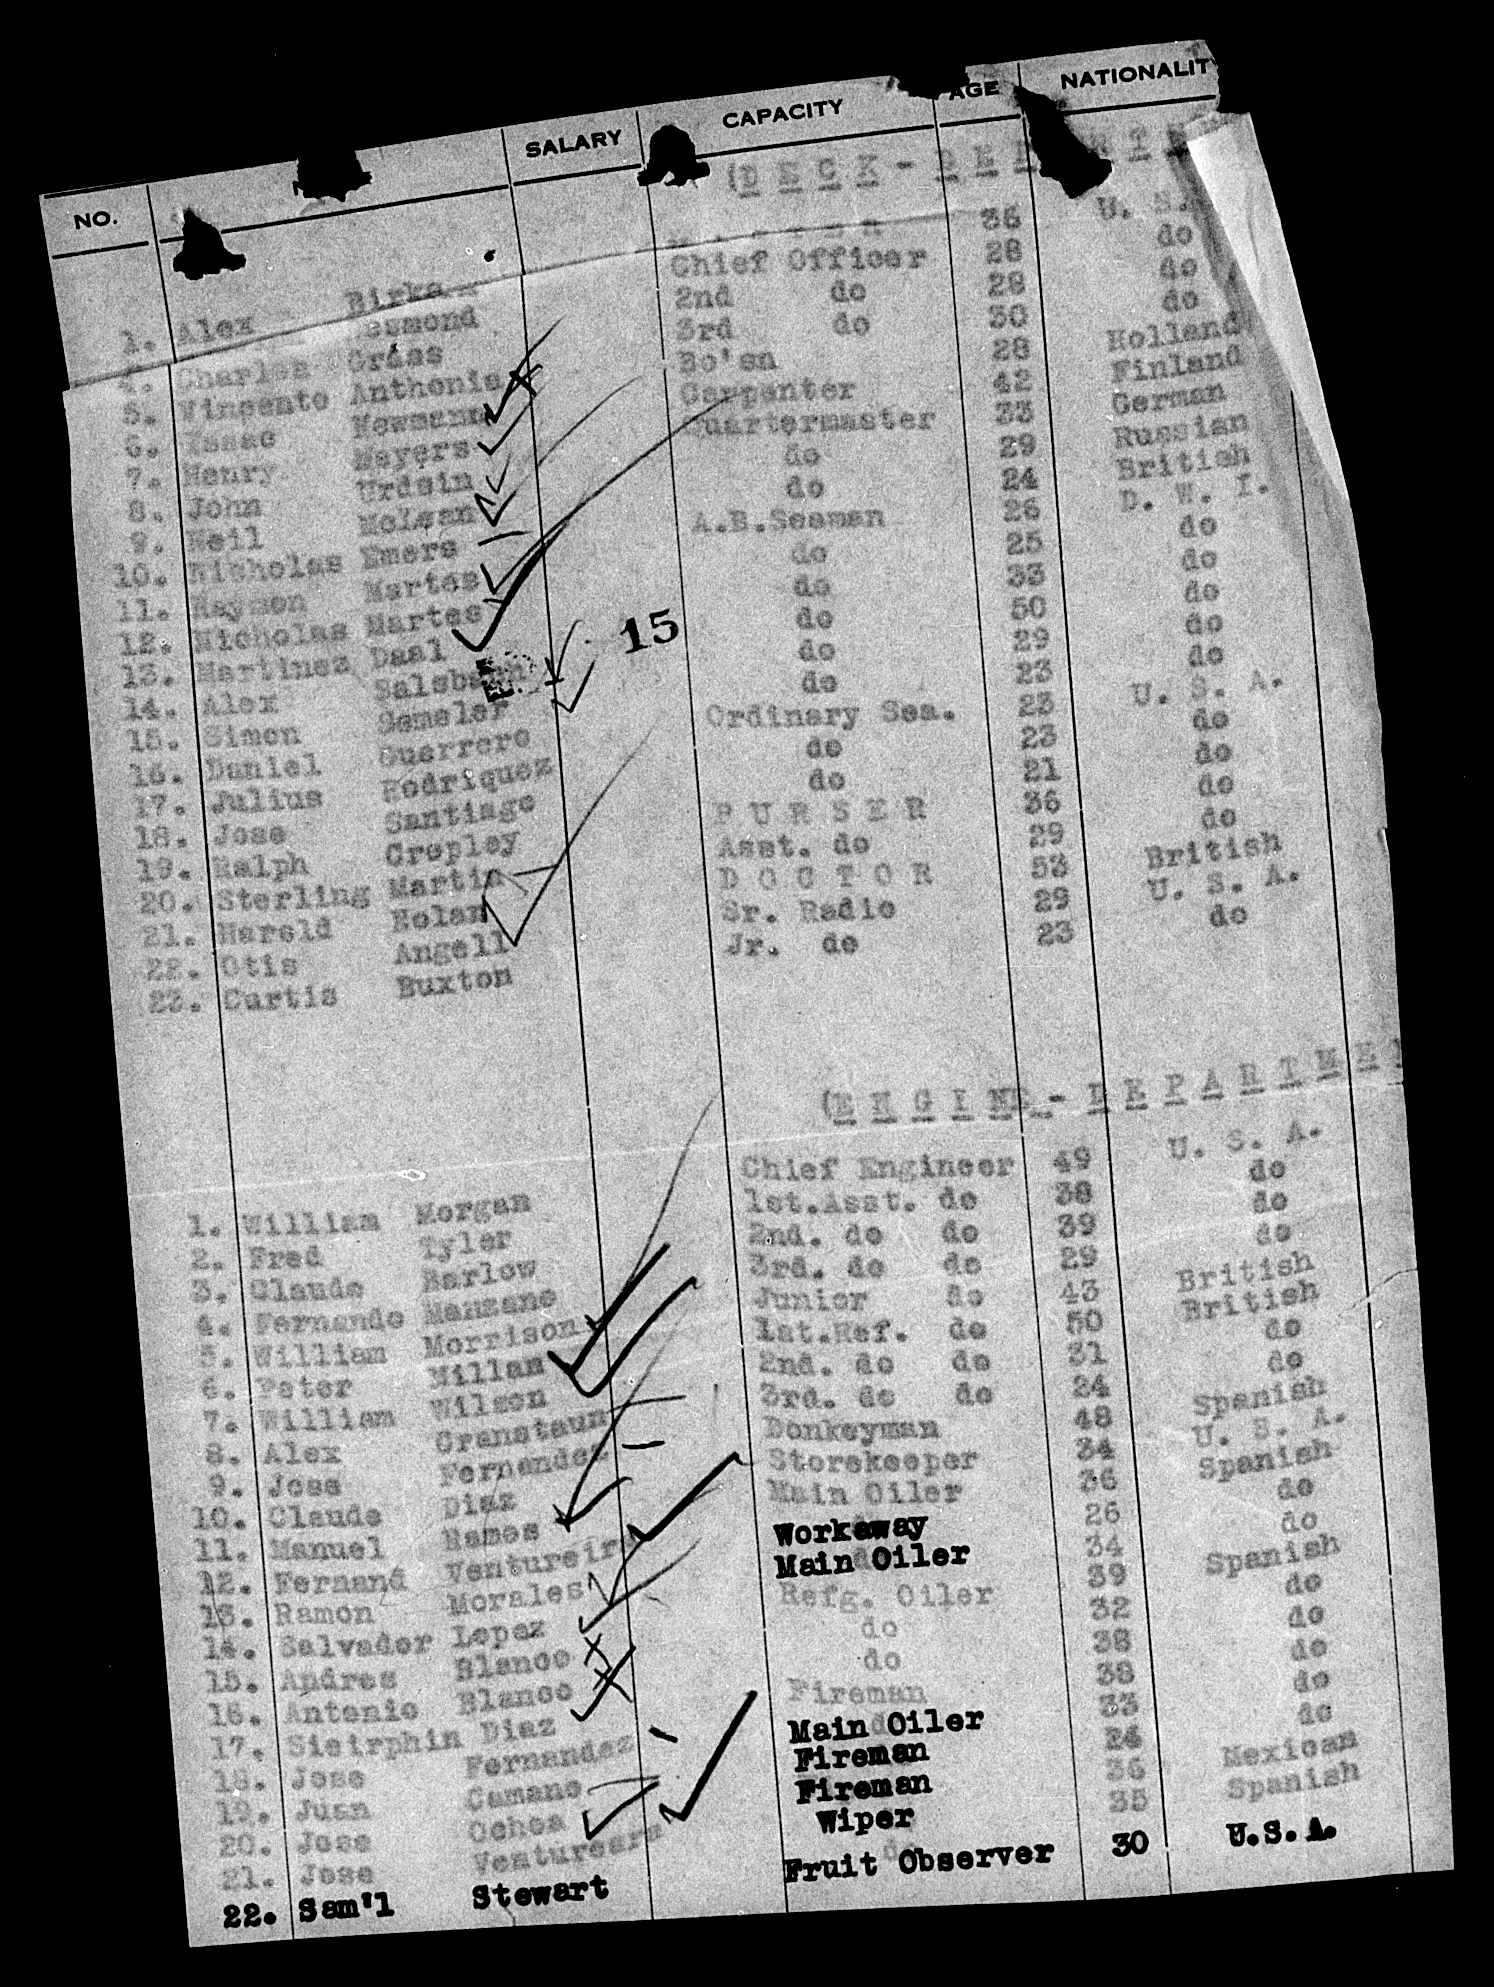 NO. SALARY CAPACITY AGE NATIONALITY
(DECK-DE
36 U. S.
Chief Officer 28 do
2nd do 28 do
1. Alex 3rd do 30 do
4. Charles Gráas
5. Vincente Anthonis Bo'sn 28 Holland
6. Isaac Newmann Carpenter 42 Finland
7. Henry Mayers Quartermaster 33 German
8. John Urdsin do 29 Russian
9. Neil McLean do 24 British
10. Nicholas Emers A.B.Seaman 26 D. W. I.
11. Raymon Martes do 25 do
12. Nicholas Martes do 33 do
13. Martinez Daal do 50 do
14. Alex Salsbach do 29 do
15
15. Simon Semeler do 23 do
16. Daniel Guerrero Ordinary Sea. 23 U. S. A.
17. Julius Rodriquez do 23 do
18. Jose Santiago do 21 do
19. Ralph Cropley P U R S E R 36 do
20. Sterling Martin Asst. do 29 do
21. Harold Nolan D O C T O R 53 British
22. Otis Angell Sr. Radio 29 U. S. A.
23. Curtis Buxton Jr. do 23 do
(E N G I N E - D E P A R T M E
1. William Morgan Chief Engineer 49 U. S. A.
2. Fred Tyler 1st.Asst. do 38 do
3. Claude Barlow 2nd. do do 39 do
4. Fernando Manzano 3rd. do do 29 do
5. William Morrison Junior do 43 British
6. Peter Millan 1st.Ref. do 50 British
7. William Wilson 2nd. do do 31 do
8. Alex Cranstaun 3rd. do do 24 do
9. Jose Fernandez Donkeyman 48 Spanish
10. Claude Diaz Storekeeper 34 U. S. A.
11. Manuel Ramos Main Oiler 36 Spanish
12. Fernand Ventureir Workaway 26 do
13. Ramon Morales Main Oiler 34 do
14. Salvador Lopez Refg. Oiler 39 Spanish
15. Andres Blanco do 32 do
16. Antonio Blanco do 38 do
17. Sieirphin Diaz Fireman 38 do
18. Jose Fernandez Main Oiler 33 do
19. Juan Camano Fireman 24 do
20. Jose Ochoa Fireman 36 Mexican
21. Jose Wiper 35 Spanish
22. Sam'l Stewart Fruit Observer 30 U.S.A.